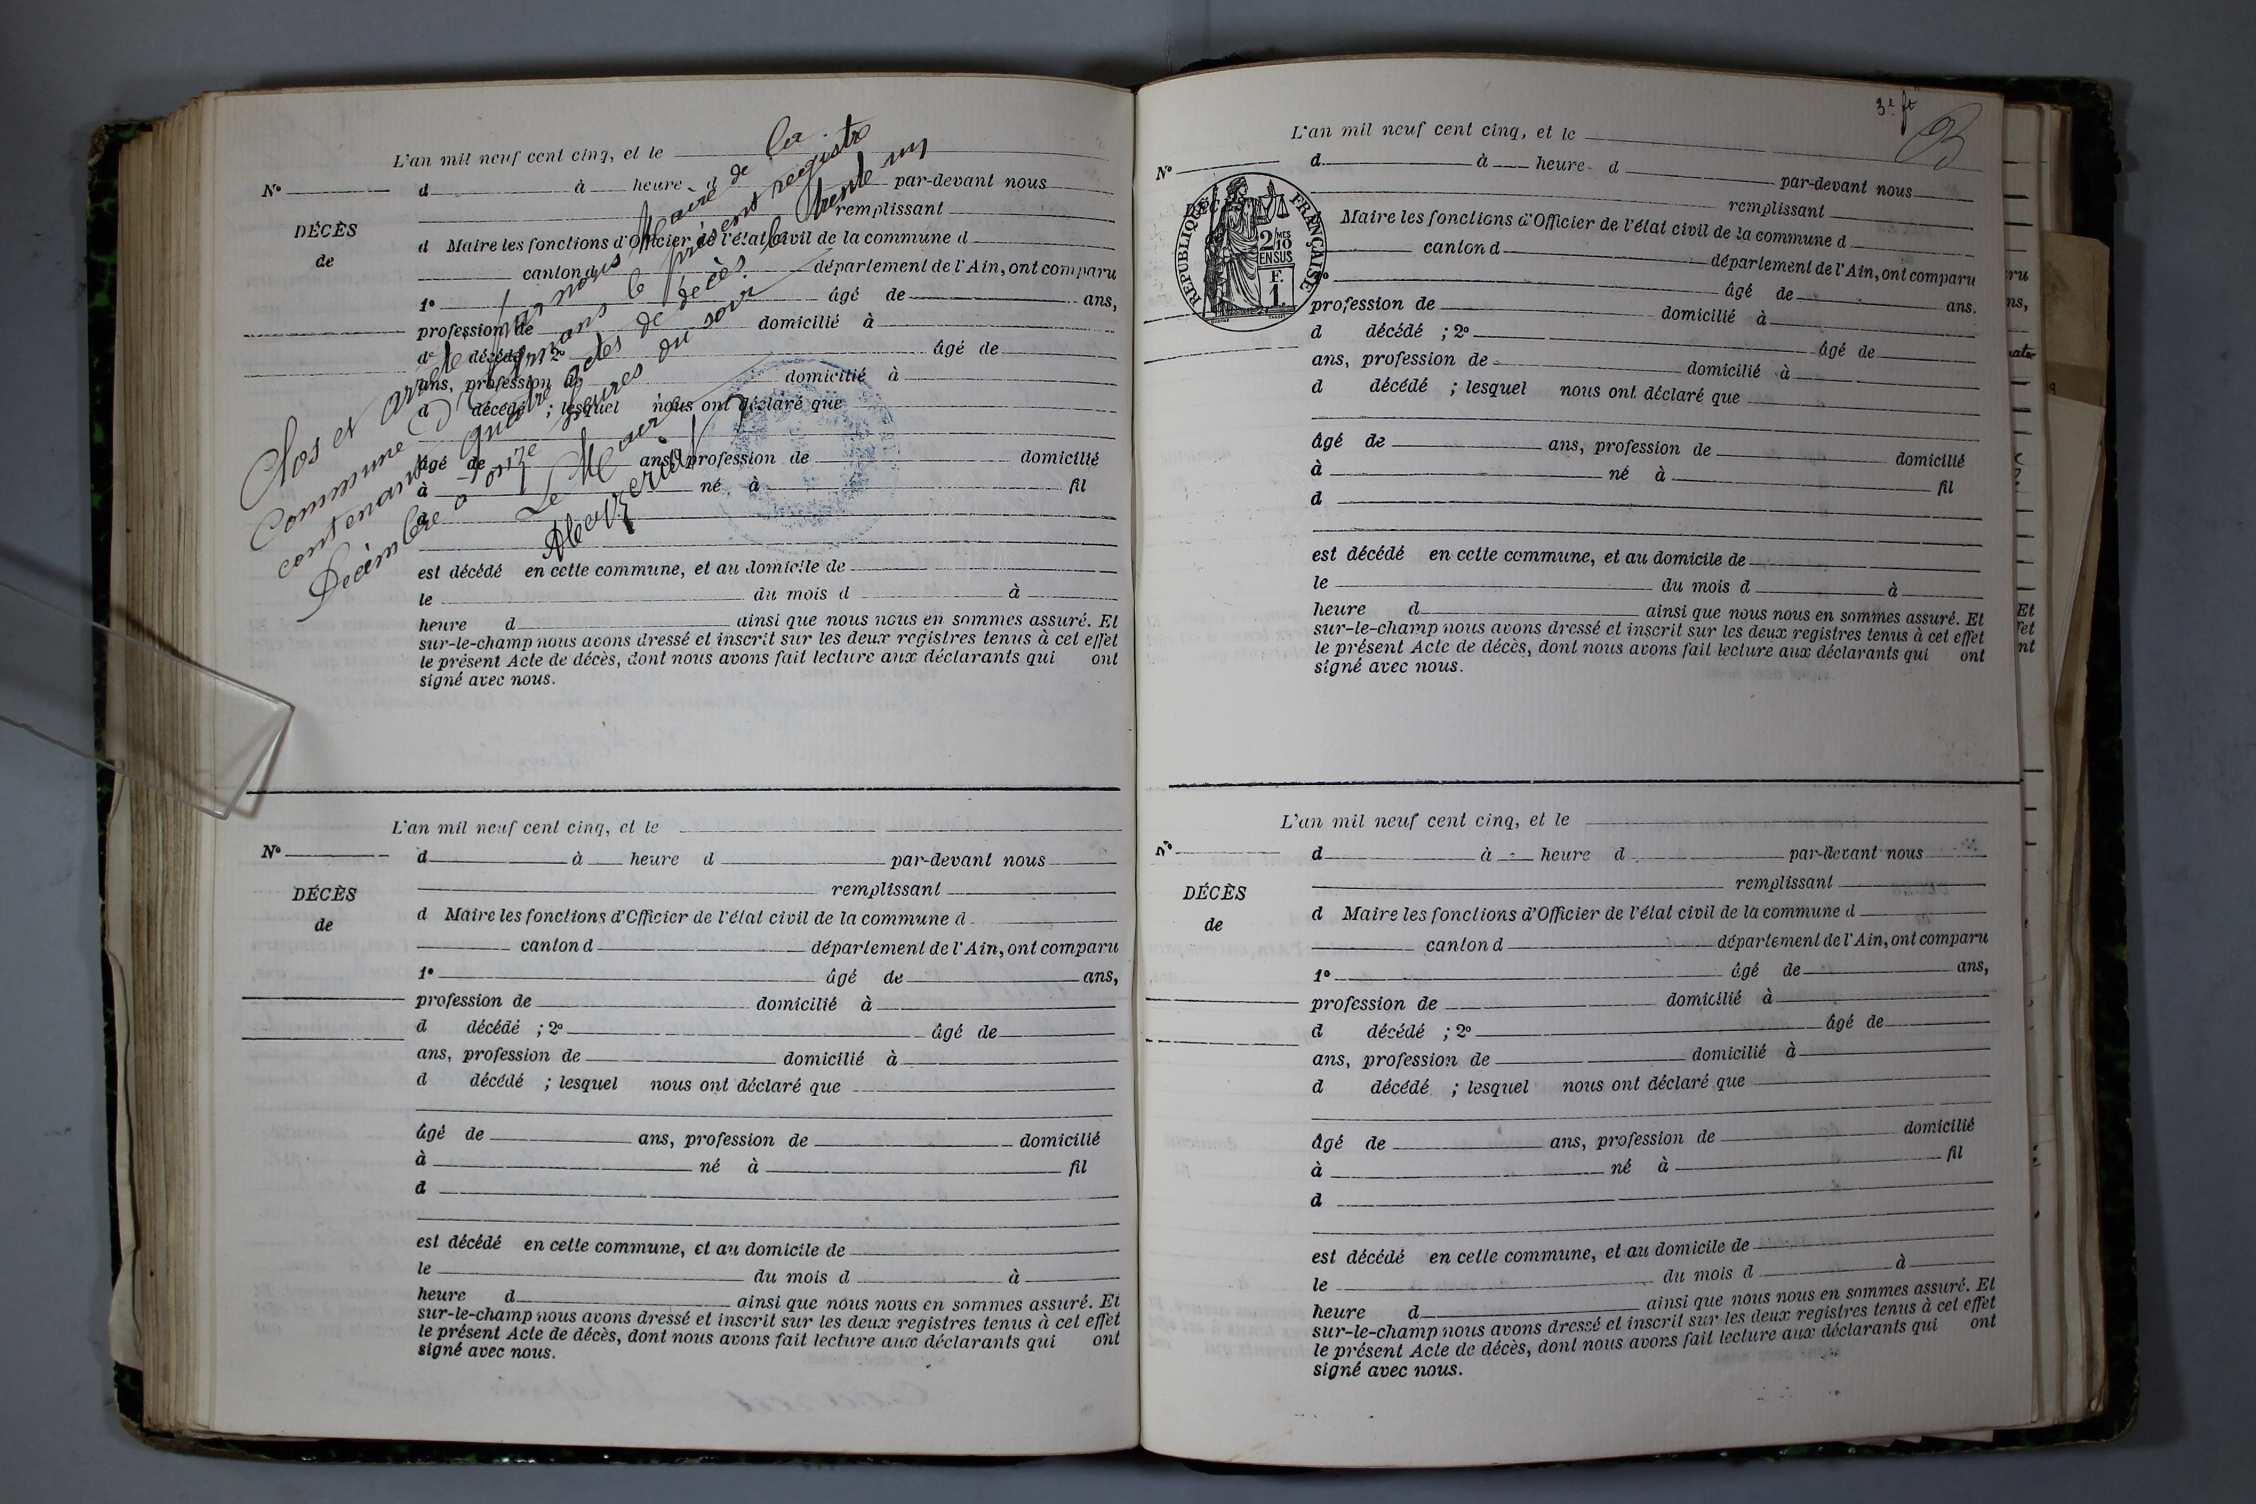 L'an mil neuf cent cinq, et le
N° d à heure d par-devant nous
remplissant
DÉCÈS
de
d Maire les fonctions d'Officier de l'état civil de la commune d
canton d département de l'Ain, ont comparu
1° âgé de ans,
profession de domicilié à
d décédé ; 2° âgé de
ans, profession de domicilié à
d décédé ; lesquel nous ont déclaré que
âgé de ans, profession de domicilié
à né à fil
d
est décédé en cette commune, et au domicile de
le du mois d à
heure d ainsi que nous nous en sommes assuré. Et
sur-le-champ nous avons dressé et inscrit sur les deux registres tenus à cet effet
le présent Acte de décès, dont nous avons fait lecture aux déclarants qui ont
signé avec nous.
Clos et arrêté par nous Maire de la
Commune d' le présent registre
contenant quatre actes de décès. le trente un
Décembre à onze heures du soir
Le Maire
L'an mil neuf cent cinq, et le
N° d à heure d par-devant nous
remplissant
DÉCÈS
de
d Maire les fonctions d'Officier de l'état civil de la commune d
canton d département de l'Ain, ont comparu
1° âgé de ans,
profession de domicilié à
d décédé ; 2° âgé de
ans, profession de domicilié à
d décédé ; lesquel nous ont déclaré que
âgé de ans, profession de domicilié
à né à fil
d
est décédé en cette commune, et au domicile de
le du mois d à
heure d ainsi que nous nous en sommes assuré. Et
sur-le-champ nous avons dressé et inscrit sur les deux registres tenus à cet effet
le présent Acte de décès, dont nous avons fait lecture aux déclarants qui ont
signé avec nous.
3e ft
L'an mil neuf cent cinq, et le
N° d à heure d par-devant nous
remplissant
RÉPUBLIQUE FRANÇAISE
2/10MES
EN SUS
F.
1.
Maire les fonctions d'Officier de l'état civil de la commune d
canton d département de l'Ain, ont comparu
âgé de ans.
profession de domicilié à
d décédé ; 2° âgé de
ans, profession de domicilié à
d décédé ; lesquel nous ont déclaré que
âgé de ans, profession de domicilié
à né à fil
d
est décédé en cette commune, et au domicile de
le du mois d à
heure d ainsi que nous nous en sommes assuré. Et
sur-le-champ nous avons dressé et inscrit sur les deux registres tenus à cet effet
le présent Acte de décès, dont nous avons fait lecture aux déclarants qui ont
signé avec nous.
L'an mil neuf cent cinq, et le
N° d à heure d par-devant nous
remplissant
DÉCÈS
de
d Maire les fonctions d'Officier de l'état civil de la commune d
canton d département de l'Ain, ont comparu
1° âgé de ans,
profession de domicilié à
d décédé ; 2° âgé de
ans, profession de domicilié à
d décédé ; lesquel nous ont déclaré que
âgé de ans, profession de domicilié
à né à fil
d
est décédé en cette commune, et au domicile de
le du mois d à
heure d ainsi que nous nous en sommes assuré. Et
sur-le-champ nous avons dressé et inscrit sur les deux registres tenus à cet effet
le présent Acte de décès, dont nous avons fait lecture aux déclarants qui ont
signé avec nous.